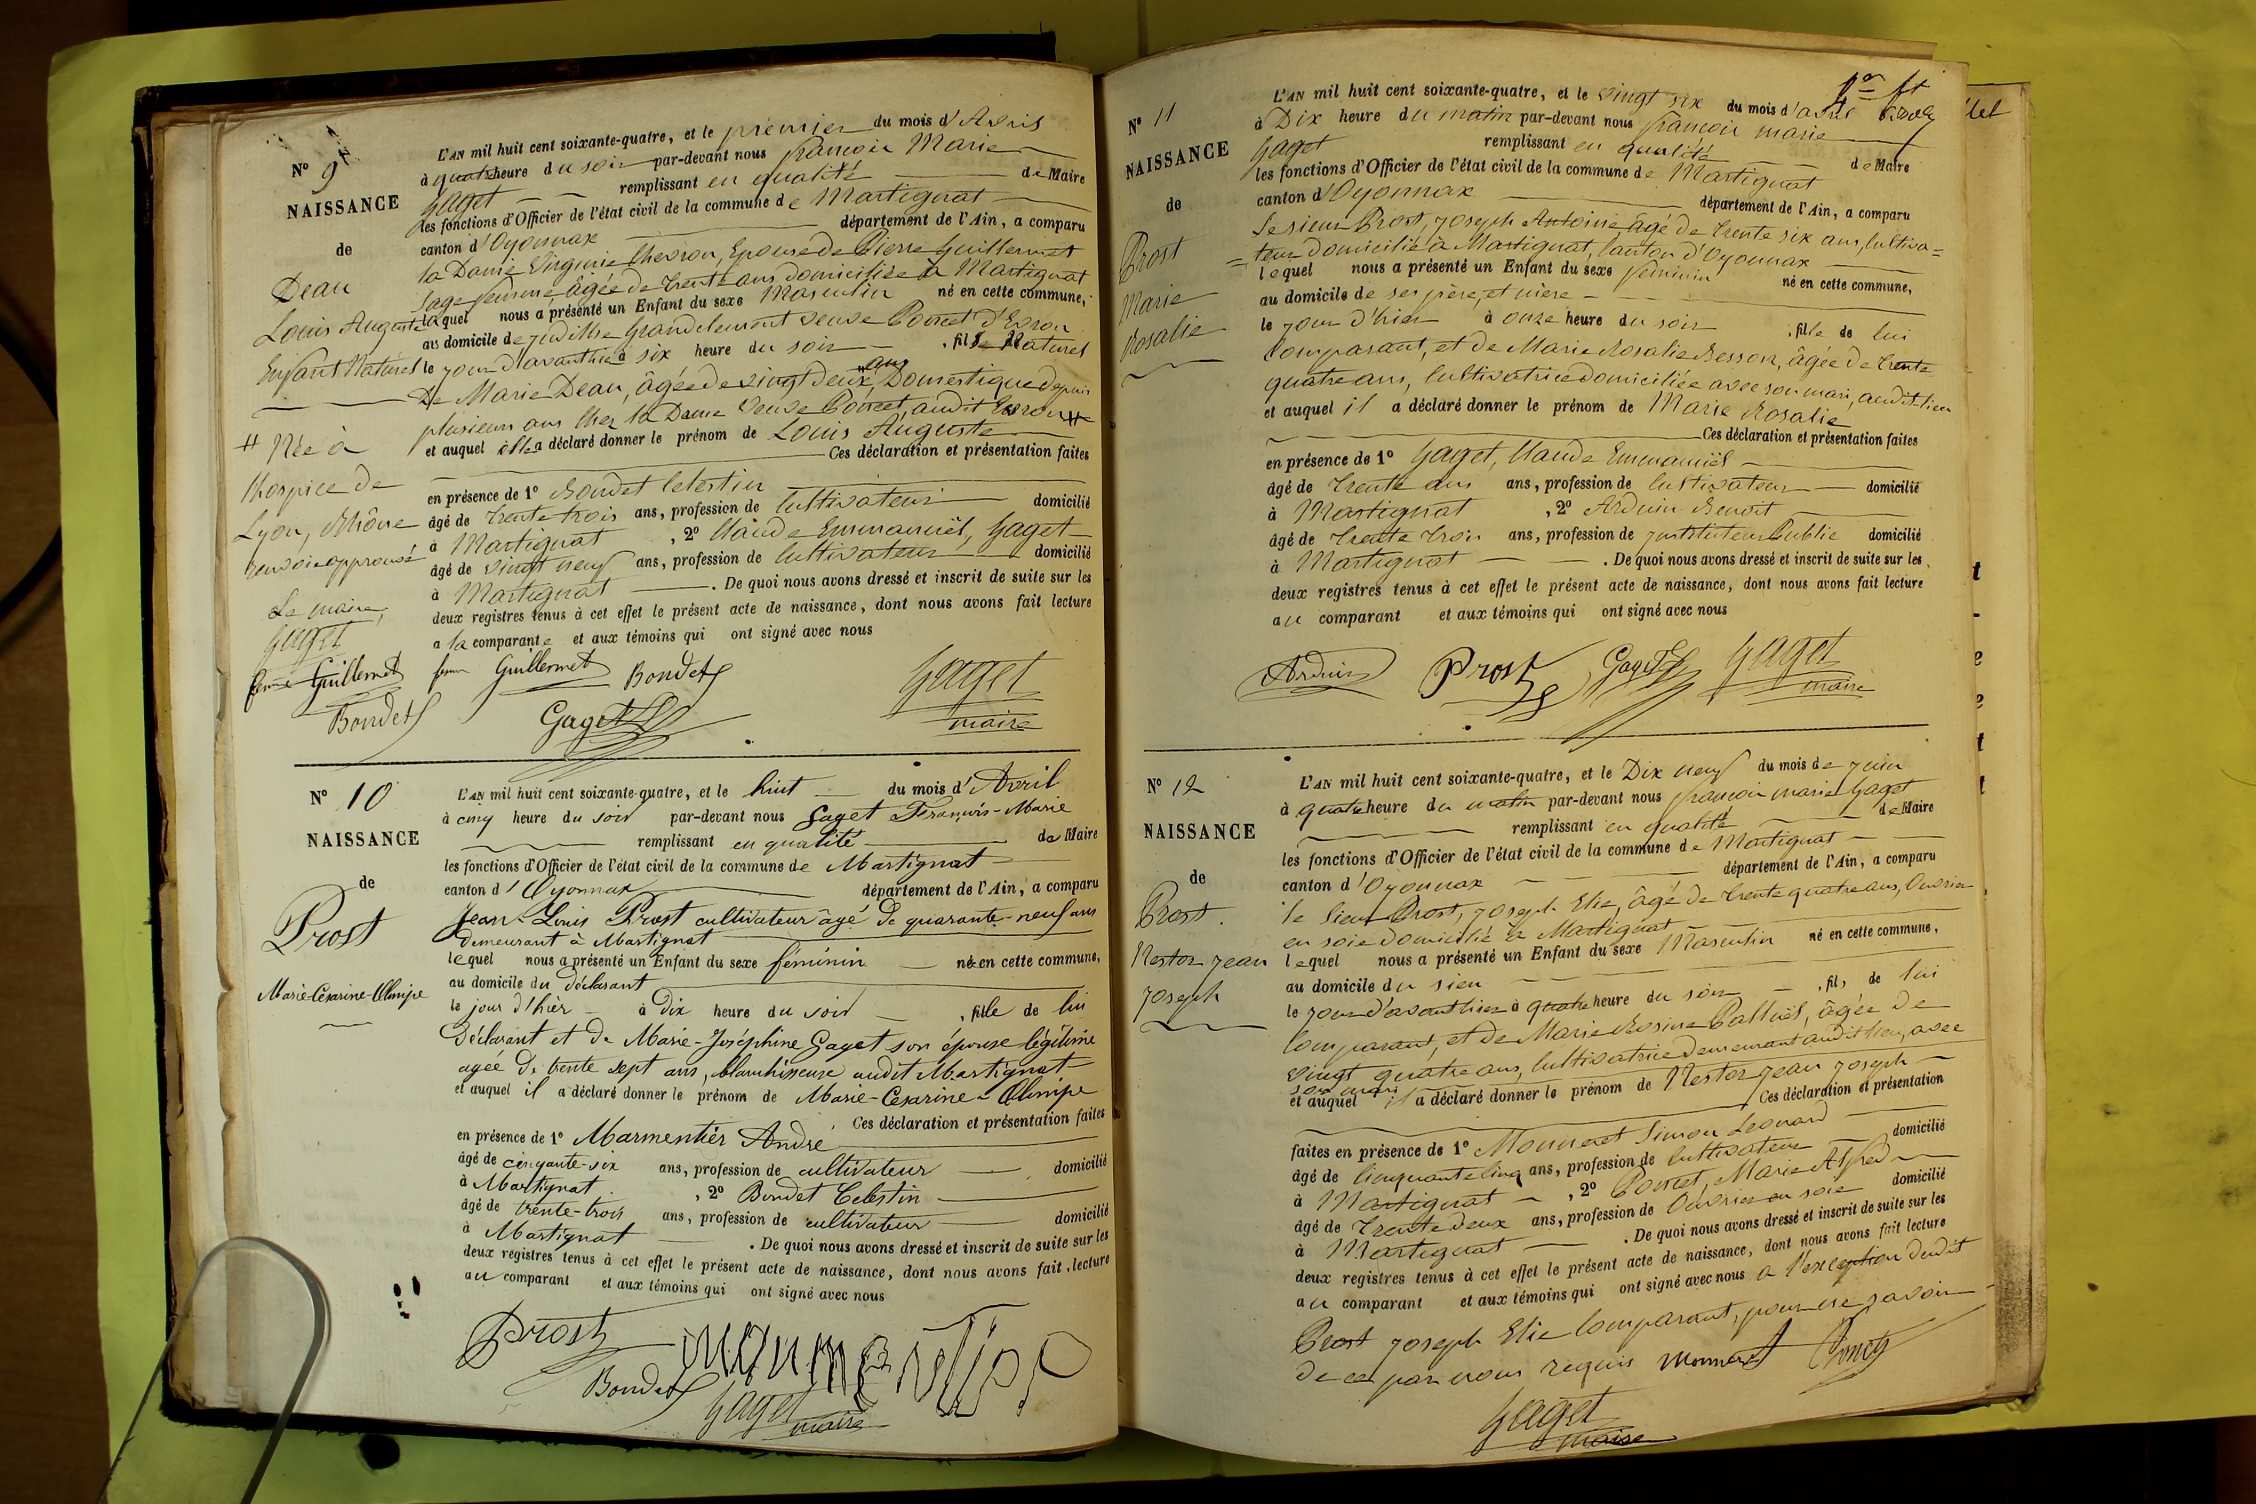 N° 9
NAISSANCE
de
Dean
Louis Auguste
Enfant Naturel
# Née à
l'hospice de
Lyon, Rhône
renvoi approuvé
Le maire,
Gaget
femme Guillermet
Bondet
L'AN mil huit cent soixante-quatre, et le premier du mois d'Avril
à quatre heure du soir par-devant nous françois Marie
Gaget remplissant en qualité de Maire
les fonctions d'Officier de l'état civil de la commune de Martignat
canton d'Oyonnax département de l'Ain, a comparu
la Dame Virginie Chevron, Epouse de Pierre Guillermet
Sage femme, âgée de trente ans domiciliée à Martignat
laquel nous a présenté un Enfant du sexe Masculin né en cette commune,
au domicile de Judithe Grandclement veuve Poncet d'Evron
le jour d'avant hier à six heure du soir fils Naturel
de Marie Dean, âgée de vingt deux ans, Domestique depuis
plusieurs ans chez la Dame Veuve Poncet, audit Evron #
et auquel elle a déclaré donner le prénom de Louis Auguste
Ces déclaration et présentation faites
en présence de 1° Bondet Celestin
âgé de trente trois ans, profession de Cultivateur domicilié
à Martignat, 2° Claude Emmanuël, Gaget
âgé de vingt neuf ans, profession de Cultivateur domicilié
à Martignat. De quoi nous avons dressé et inscrit de suite sur les
deux registres tenus à cet effet le présent acte de naissance, dont nous avons fait lecture
a la comparante et aux témoins qui ont signé avec nous
femme Guillermet Bondet Gaget
Gaget maire
N° 10
NAISSANCE
de
Prost
Marie-Césarine-Olimpe
L'AN mil huit cent soixante-quatre, et le huit du mois d'Avril
à cinq heure du soir par-devant nous Gaget François-Marie
remplissant en qualité de Maire
les fonctions d'Officier de l'état civil de la commune de Martignat
canton d'Oyonnax département de l'Ain, a comparu
Jean-Louis Prost cultivateur âgé de quarante-neuf ans
demeurant à Martignat
lequel nous a présenté un Enfant du sexe féminin né en cette commune,
au domicile du déclarant
le jour d'hier à Dix heure du soir, fille de lui
déclarant et de Marie-Joséphine Gaget son épouse légitime
agée de trente sept ans, blanchisseuse audit Martignat
et auquel il a déclaré donner le prénom de Marie-Césarine-Olimpe
Ces déclaration et présentation faites
en présence de 1° Marmentier André
âgé de cinquante-six ans, profession de cultivateur domicilié
à Martignat, 2° Bondet Celestin
âgé de trente-trois ans, profession de cultivateur domicilié
à Martignat. De quoi nous avons dressé et inscrit de suite sur les
deux registres tenus à cet effet le présent acte de naissance, dont nous avons fait lecture
au comparant et aux témoins qui ont signé avec nous
Prost
Bondet
Gaget
maire
N° 11
NAISSANCE
de
Prost
Marie
Rosalie
L'AN mil huit cent soixante-quatre, et le vingt six du mois d'avril
à Dix heure du matin par-devant nous françois marie
Gaget remplissant en qualité de Maire
les fonctions d'Officier de l'état civil de la commune de Martignat
canton d'Oyonnax département de l'Ain, a comparu
le sieur Prost, Joseph Antoine, âgé de trente six ans, Cultiva=
=teur domicilié à Martignat, Canton d'Oyonnax
lequel nous a présenté un Enfant du sexe féminin né en cette commune,
au domicile de ses père, et mère
le jour d'hier à onze heure du soir, fille de lui
Comparant, et de Marie Rosalie Besson, âgée de trente
quatre ans, Cultivatrice domiciliée avec son mari, audit-lieu
et auquel il a déclaré donner le prénom de Marie Rosalie
Ces déclaration et présentation faites
en présence de 1° Gaget, Claude Emmanuël
âgé de trente ans ans, profession de Cultivateur domicilié
à Martignat, 2° Arduin Benoit
âgé de trente trois ans, profession de Instituteur Public domicilié
à Martignat. De quoi nous avons dressé et inscrit de suite sur les
deux registres tenus à cet effet le présent acte de naissance, dont nous avons fait lecture
au comparant et aux témoins qui ont signé avec nous
Arduin Prost Gaget Gaget
maire
N° 12
NAISSANCE
de
Prost.
Nestor Jean
Joseph
L'AN mil huit cent soixante-quatre, et le Dix neuf du mois de juin
à quatre heure du matin par-devant nous françois marie Gaget
remplissant en qualité de Maire
les fonctions d'Officier de l'état civil de la commune de Martignat
canton d'Oyonnax département de l'Ain, a comparu
le sieur Prost, Joseph Elie, âgé de trente quatre ans, Ouvrier
en soie domicilié à Martignat
lequel nous a présenté un Enfant du sexe Masculin né en cette commune,
au domicile du sieu
le jour d'avant hier à quatre heure du soir, fils de lui
Comparant, et de Marie Rosine Calliel, âgée de
vingt quatre ans, Cultivatrice demeurant audit lieu, avec
son mari
et auquel il a déclaré donner le prénom de Nestor Jean Joseph
Ces déclaration et présentation
faites en présence de 1° Monneret Simon Leonard
âgé de Cinquante Cinq ans, profession de Cultivateur domicilié
à Martignat, 2° Poncet, Marie Alfred
âgé de trente deux ans, profession de Ouvrier en soie domicilié
à Martignat. De quoi nous avons dressé et inscrit de suite sur les
deux registres tenus à cet effet le présent acte de naissance, dont nous avons fait lecture
au comparant et aux témoins qui ont signé avec nous a l'exception dudit
Prost Joseph Elie Comparant, pour ne savoir
de ce par nous requis Monneret Poncet
Gaget
maire